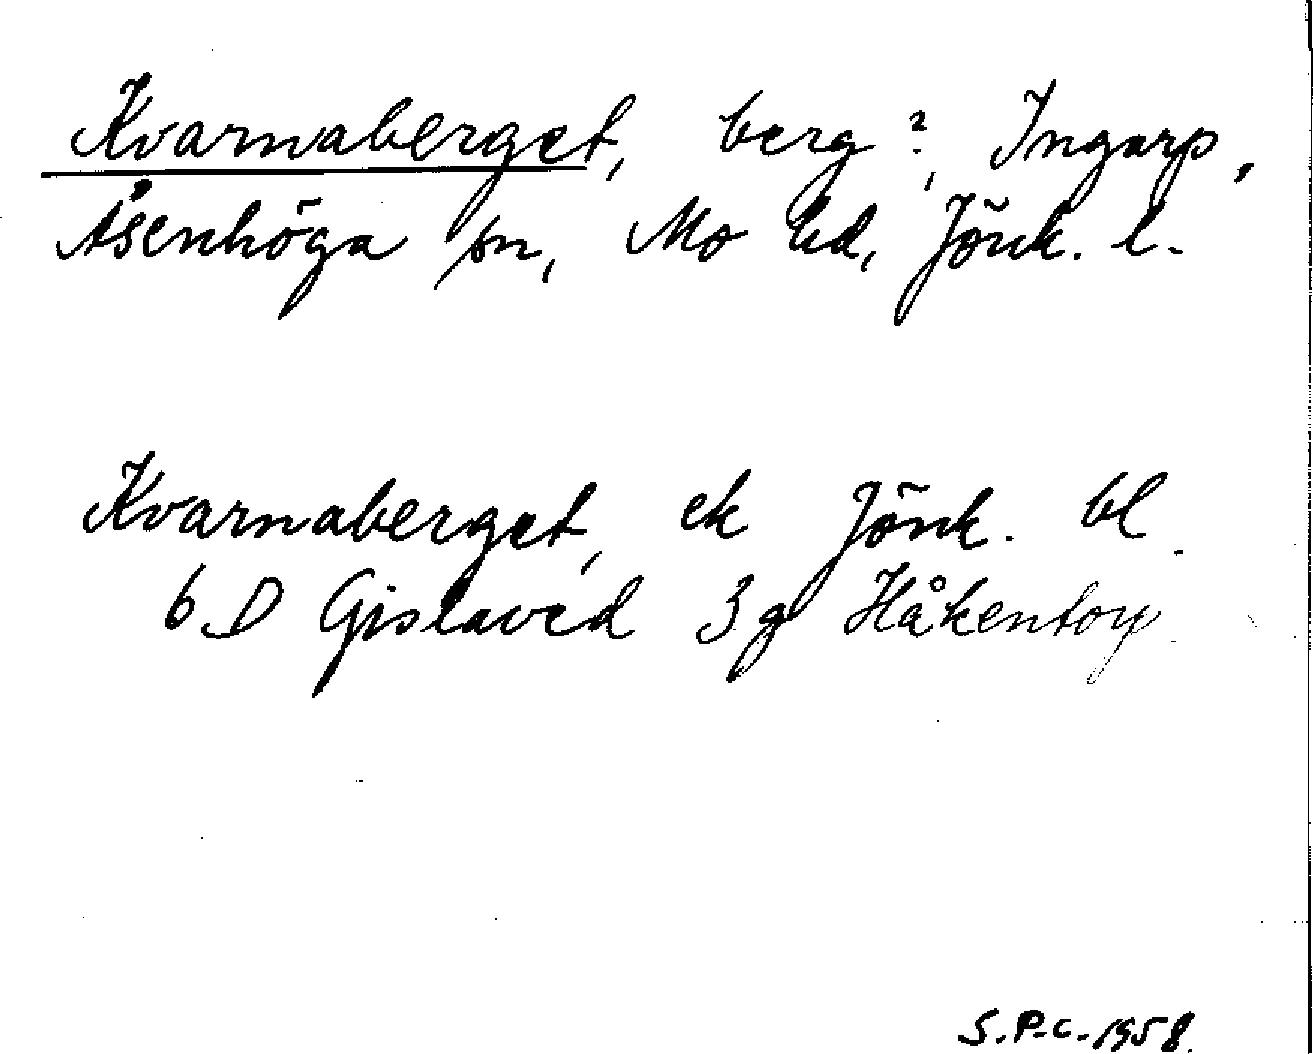 Kvarnaberget, berg?, Ingarp,
Åsenhöga sn, Mo hd, Jönk. l.
Kvarnaberget, ek Jönk. bl.
6 D Gislaved 3 g Håkentorp
S.P.C. 1958.